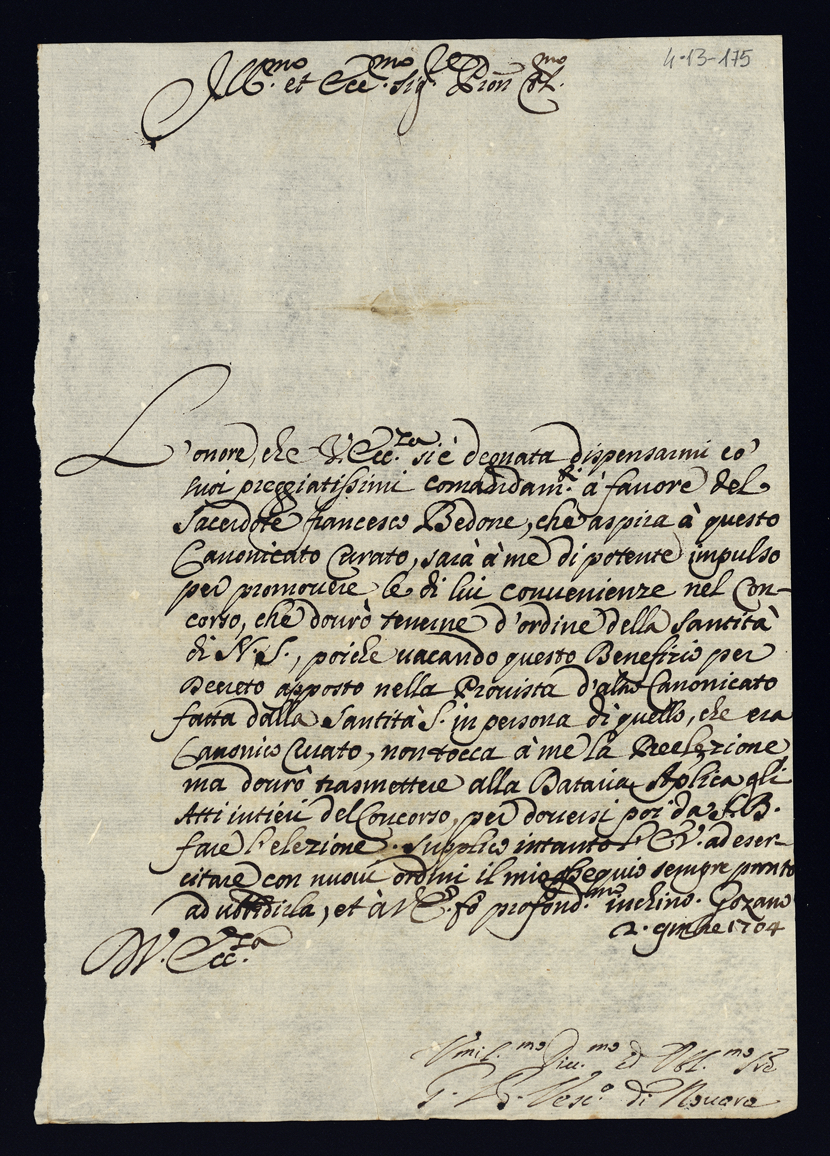 4-13-175
Ill.mo et Ecc.mo Sig.re Pron Col.mo
L'onore, che V. Ecc.za si è degnata dispensarmi co'
suoi preggiatissimi comandam.ti à favore del
Sacerdote francesco Bedone, che aspira à questo
Canonicato Curato, sarà à me di potente impulso
per promouere le di lui conuenienze nel Con-
corso, che dourò tenerne d'ordine della Santità
di N. S., poiche uacando questo Benefizio per
Decreto apposto nella Prouista d'altro Canonicato
fatta dalla Santità S. in persona di quello, che era
Canonico Curato, non tocca à me la Preelezione
ma dourò trasmettere alla Dataria Aplica gli
Atti intieri del Concorso, per douersi poi da S. B.
fare l'elezione. Supplico intanto l'E. V. ad eser-
citare con nuoui ordini il mio ossequio sempre pronto
ad ubbidirla, et à V. E. fò profond.mo inchino. Gozano
2. gmbre 1704
D V. Ecc.za
Vmil.mo Diu.mo ed Obl.mo Sre
G. B. Vesc.o di Nouara